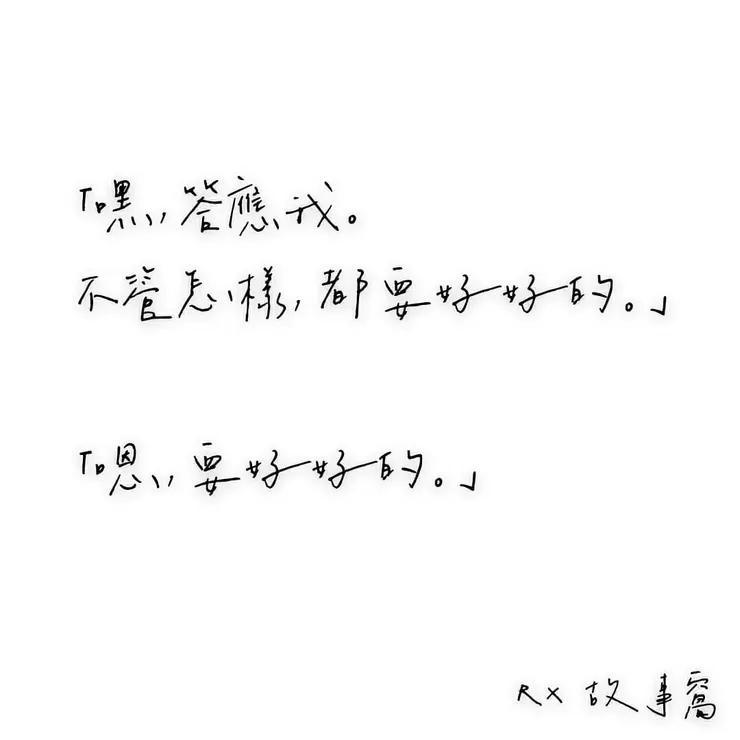 「嘿,答應我。
不管怎樣,都要好好的。」
「嗯,要好好的。」
RX 故事窩